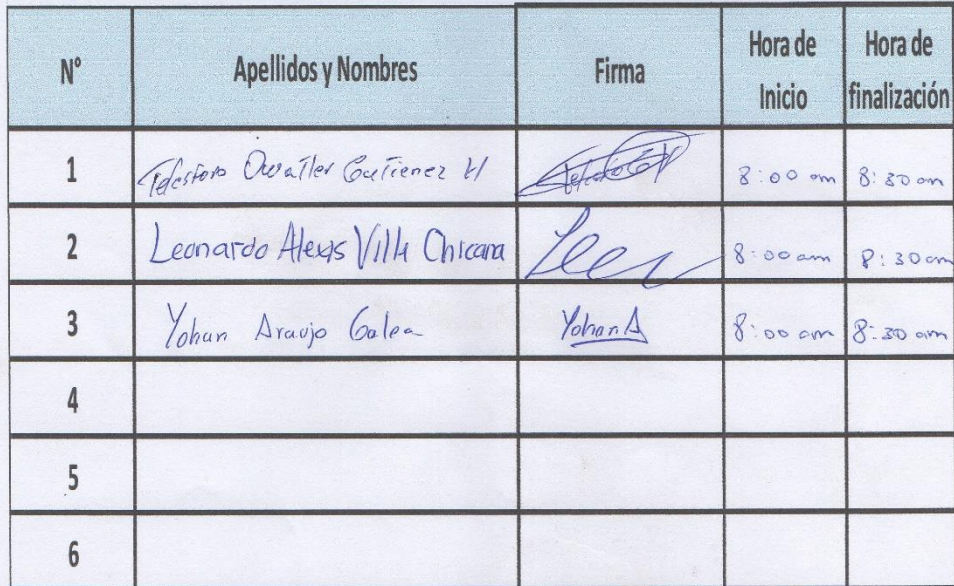 N° Apellidos y Nombres Firma Hora de Inicio Hora de finalización
1 Telesforo Gutierrez H 8:00 am 8:30 am
2 Leonardo Alexis Villa Chicana 8:00 am 8:30 am
3 Yohan Araujo Galea Yohan A 8:00 am 8:30 am
4
5
6